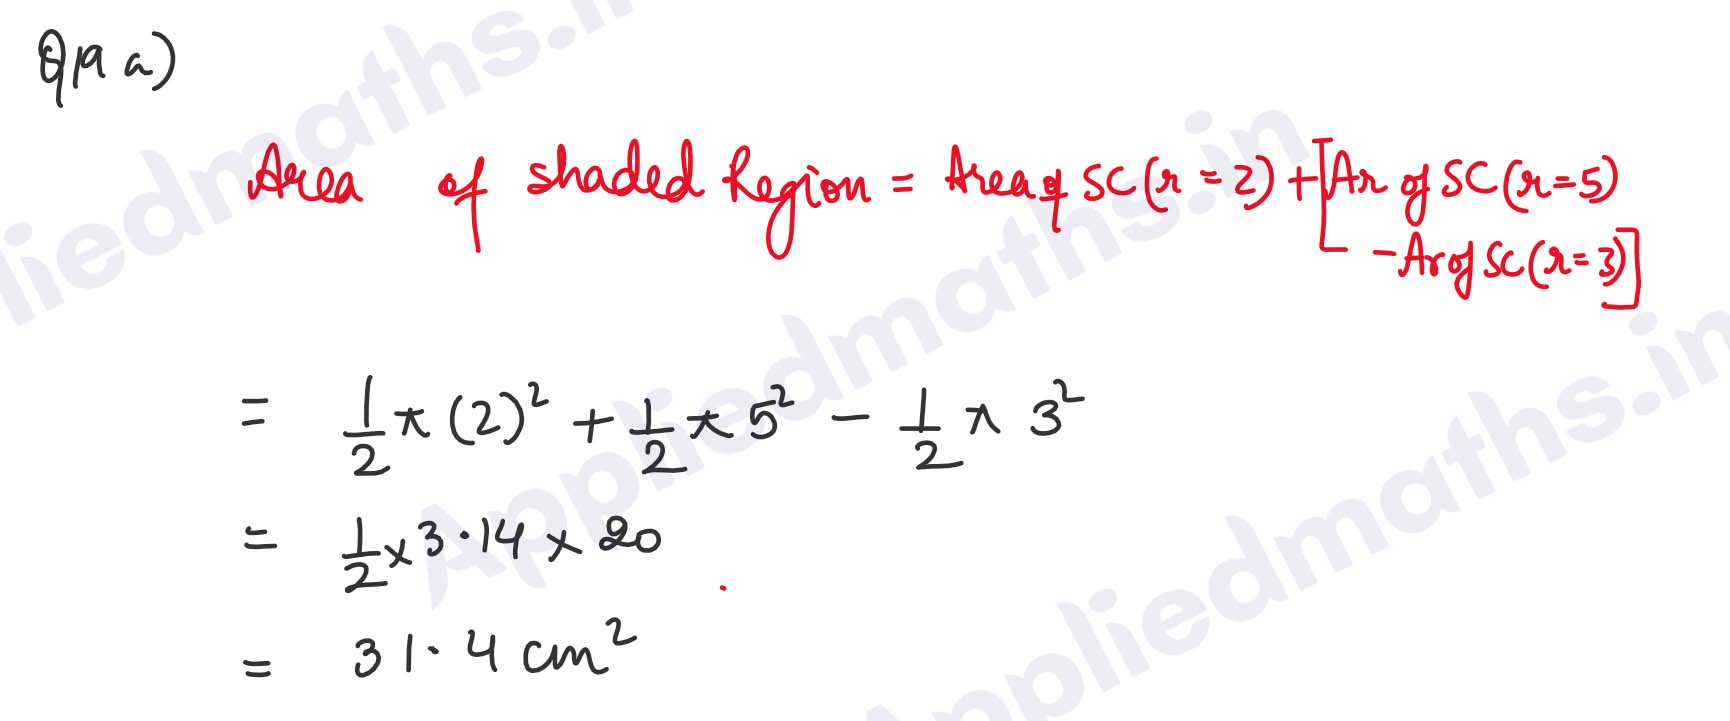 Q19 a)
Area of shaded Region = Area of SC (r = 2) + [Ar of SC (r = 5)
- Ar of SC (r = 3)]
= 1/2 π (2)² + 1/2 π 5² - 1/2 π 3²
= 1/2 × 3.14 × 20
= 31.4 cm²
Appliedmaths.in
Appliedmaths.in
Appliedmaths.in